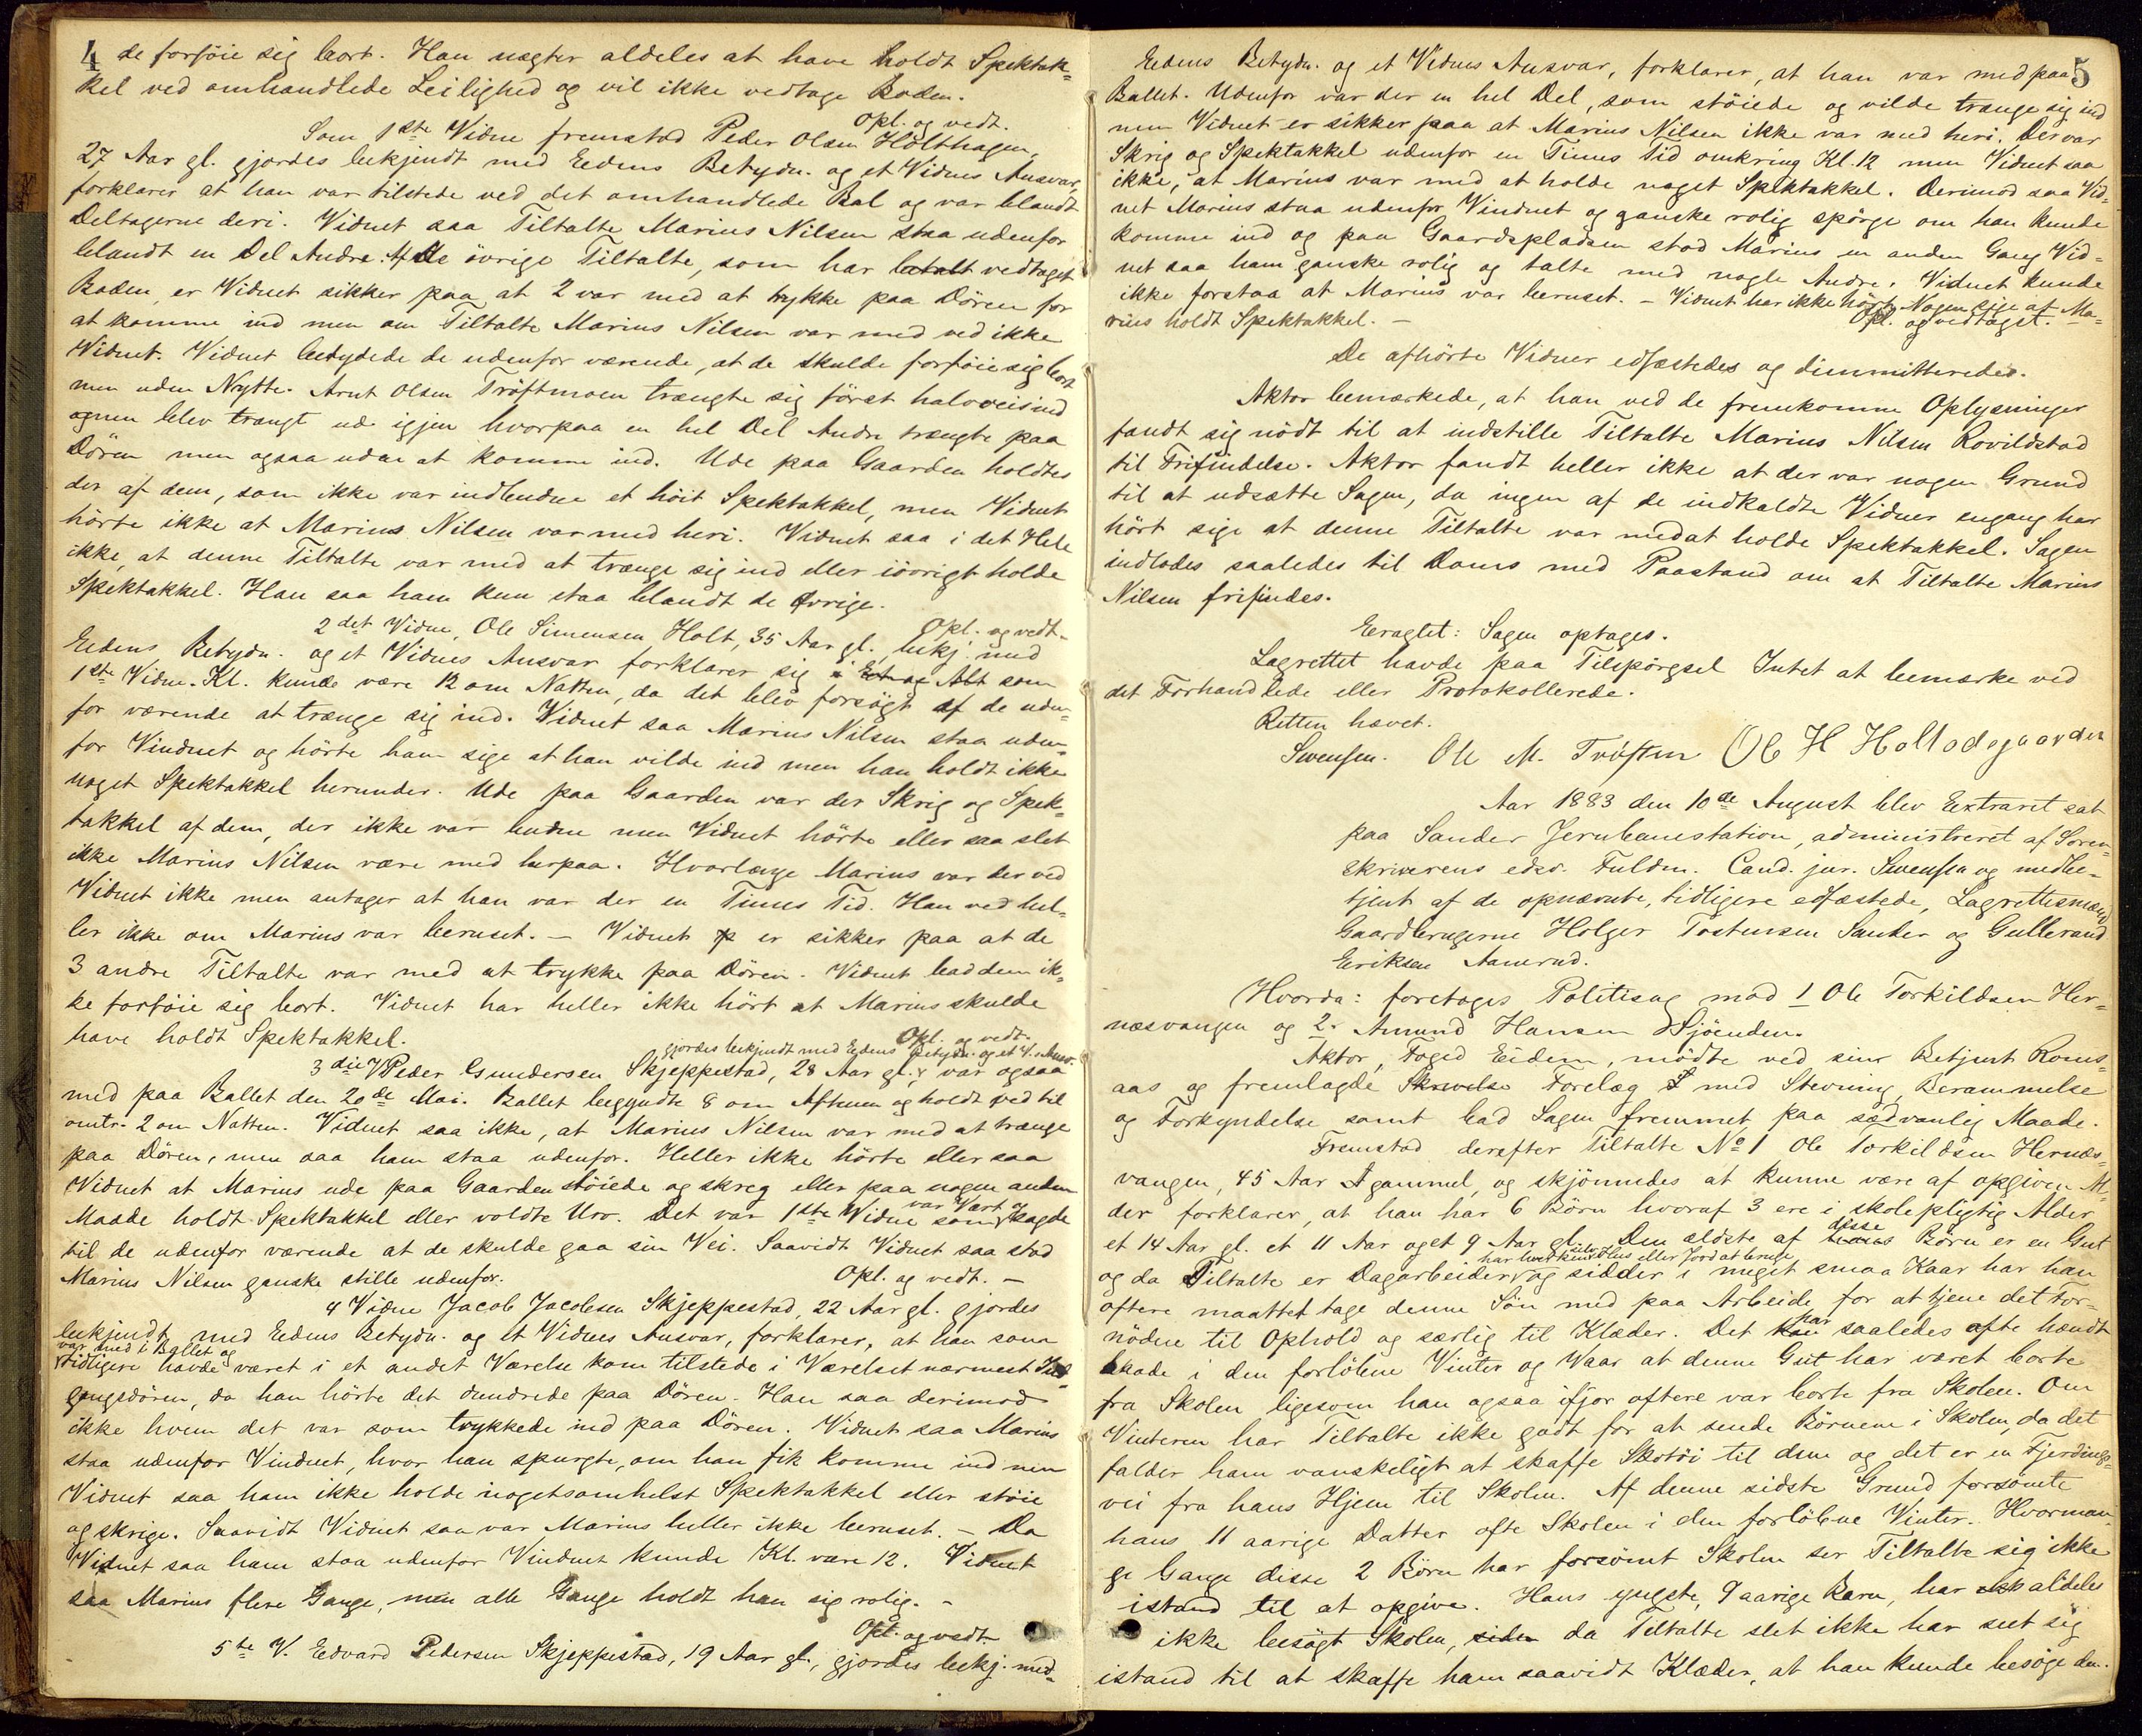 4 de forføie sig bort. Han nægter aldeles at have holdt Spektak-
kel ved omhandlede Leilighed og vil ikke vedtage Boden.
Opl. og vedt.
Som 1ste Vidne fremstod Peder Olsen Holthagen,
27 Aar gl. gjordes bekjendt med Eedens Betydn. og et Vidnes Ansvar,
forklarer at han var tilstede ved det omhandlede Bal og var blandt
Deltagerne deri. Vidnet saa Tiltalte Marius Nilsen staa udenfor
blandt en Del Andre. Af de øvrige Tiltalte, som har betalt vedtaget
Boden, er Vidnet sikker paa, at 2 var med at trykke paa Døren for
at komme ind men om Tiltalte Marius Nilsen var med ved ikke
Vidnet. Vidnet betydede de udenfor værende, at de skulde forføie sig bort
men uden Nytte. Arnt Olsen Trøftmoen trængte sig først halvveis ind
men blev trængt ud igjen hvorpaa en hel Del Andre trængte paa
Døren men ogsaa uden at komme ind. Ude paa Gaarden holdtes
der af dem, som ikke var indbudne et høit Spektakkel, men Vidnet
hørte ikke at Marius Nilsen var med heri. Vidnet saa i det Hele
ikke, at denne Tiltalte var med at trænge sig ind eller iøvrigt holde
Spektakkel. Han saa ham kun staa blandt de Øvrige.
Opl. og vedt.
2det Vidne, Ole Simensen Holt, 35 Aar gl. bekj. med
Eedens Betydn. og et Vidnes Ansvar forklarer sig i Et og Alt som
1ste Vidne. Kl. kunde være 12 om Natten, da det blev forsøgt af de uden-
for værende at trænge sig ind. Vidnet saa Marius Nilsen staa uden-
for Vinduet og hørte ham sige at han vilde ind men han holdt ikke
noget Spektakkel herunder. Ude paa Gaarden var der Skrig og Spek-
takkel af dem, der ikke var budne men Vidnet hørte eller saa slet
ikke Marius Nilsen være med herpaa. Hvorlænge Marius var der ved
Vidnet ikke men antager at han var der en Times Tid. Han ved hel-
ler ikke om Marius var beruset. — Vidnet er sikker paa at de
3 andre Tiltalte var med at trykke paa Døren. Vidnet bad dem ik-
ke forføie sig bort. Vidnet har heller ikke hørt at Marius skulde
have holdt Spektakkel.
Opl. og vedt.
gjordes bekjendt med Eedens Betydn. og et V. Ansv.
3die V Peder Gundersen Skjeppestad, 28 Aar gl. var ogsaa
med paa Ballet den 20de Mai. Ballet begyndte 8 om Aftenen og holdt ved til
omtr. 2 om Natten. Vidnet saa ikke, at Marius Nilsen var med at trænge
paa Døren, men saa ham staa udenfor. Heller ikke hørte eller saa
Vidnet at Marius ude paa Gaarden støiede og skreg eller paa nogen anden
Maade holdt Spektakkel eller voldte Uro. Det var 1ste Vidne som var Vært og sagde
til de udenfor værende at de skulde gaa sin Vei. Saavidt Vidnet saa stod
Marius Nilsen ganske stille udenfor. Opl. og vedt. —
4 Vidne Jacob Jacobsen Skjeppestad, 22 Aar gl. gjordes
bekjendt med Eedens Betydn. og et Vidnes Ansvar, forklarer, at han som
var med i Ballet og
tidligere havde været i et andet Værelse kom tilstede i Værelset nærmest Ind-
gangsdøren, da han hørte det dundrede paa Døren. Han saa derimod
ikke hvem det var som trykkede ind paa Døren. Vidnet saa Marius
staa udenfor Vinduet, hvor han spurgte, om han fik komme ind men
Vidnet saa ham ikke holde nogetsomhelst Spektakkel eller støie
og skrige. Saavidt Vidnet saa var Marius heller ikke beruset. — Da
Vidnet saa ham staa udenfor Vinduet kunde Kl. være 12. Vidnet
saa Marius flere Gange, men alle Gange holdt han sig rolig. —
Opl. og vedt
5te V. Edvard Pedersen Skjeppestad, 19 Aar gl., gjordes bekj. med
5
Eedens Betydn. og et Vidnes Ansvar, forklarer, at han var med paa
Ballet. Udenfor var der en hel Del, som støiede og vilde trænge sig ind
men Vidnet er sikker paa at Marius Nilsen ikke var med heri. Der var
Skrig og Spektakkel udenfor en Times Tid omkring Kl. 12 men Vidnet saa
ikke, at Marius var med at holde noget Spektakkel. Derimod saa Vid-
net Marius staa udenfor Vinduet og ganske rolig spørge om han kunde
komme ind og paa Gaardspladsen stod Marius en anden Gang Vid-
net saa ham ganske rolig og talte med nogle Andre. Vidnet kunde
ikke forstaa at Marius var beruset. — Vidnet har ikke hørt Nogen sige at Ma-
rius holdt Spektakkel. — Opl. og vedtaget.
De afhørte Vidner edfæstedes og dimmitteredes.
Aktor bemærkede, at han ved de fremkomne Oplysninger
fandt sig nødt til at indstille Tiltalte Marius Nilsen Rovildstad
til Frifindelse. Aktor fandt heller ikke at der var nogen Grund
til at udsætte Sagen, da ingen af de indkaldte Vidner engang har
hørt sige at denne Tiltalte var med at holde Spektakkel. Sagen
indlodes saaledes til Doms med Paastand om at Tiltalte Marius
Nilsen frifindes.
Eragtet: Sagen optages.
Lagrettet havde paa Tilspørgsel Intet at bemærke ved
det Forhandlede eller Protokollerede.
Retten hævet.
Swensen. Ole M. Trøften Ole H Holtodegaarden
Aar 1883 den 10de August blev Extraret sat
paa Sander Jernbanestation, administreret af Soren-
skriverens edsv. Fuldm. Cand. jur. Swensen og medbe-
tjent af de opnævnte, tidligere edfæstede, Lagrettesmænd
Gaardbrugerne Holger Tostensen Sander og Gulbrand
Eriksen Aamrud.
Hvorda: foretoges Politisag mod 1 Ole Torkildsen Her-
næsvangen og 2. Amund Hansen Sjøenden.
Aktor, Foged Eidem, mødte ved sin Betjent Roms-
aas og fremlagde Skrivelse Forelæg med Stevning, Berammelse
og Forkyndelse samt bad Sagen fremmet paa sædvanlig Maade.
Fremstod derefter Tiltalte No 1 Ole Torkildsen Hernæs-
vangen, 45 Aar gammel, og skjønnedes at kunne være af opgiven Al-
der forklarer, at han har 6 Børn hvoraf 3 ere i skolepligtig Alder
et 14 Aar gl. et 11 Aar og et 9 Aar gl. Den ældste af disse Børn er en Gut
har hverken Hus eller Jord at bruge
og da Tiltalte er Dagarbeider, og sidder i meget smaa Kaar har han
oftere maattet tage denne Søn med paa Arbeide for at tjene det for-
nødne til Ophold og særlig til Klæder. Det har saaledes ofte hændt
i den forløbne Vinter og Vaar at denne Gut har været borte
fra Skolen ligesom han ogsaa ifjor oftere var borte fra Skolen. Om
Vinteren har Tiltalte ikke godt for at sende Børnene i Skolen, da det
falder ham vanskeligt at skaffe Skotøi til dem og det er en Fjerdings-
vei fra hans Hjem til Skolen. Af denne sidste Grund forsømte
hans 11 aarige Datter ofte Skolen i den forløbne Vinter. Hvorman-
ge Gange disse 2 Børn har forsømt Skolen ser Tiltalte sig ikke
istand til at opgive. Hans yngste, 9 aarige Barn, har aldeles
ikke besøgt Skolen, siden da Tiltalte slet ikke har seet sig
istand til at skaffe ham saavidt Klæder, at han kunde besøge den.